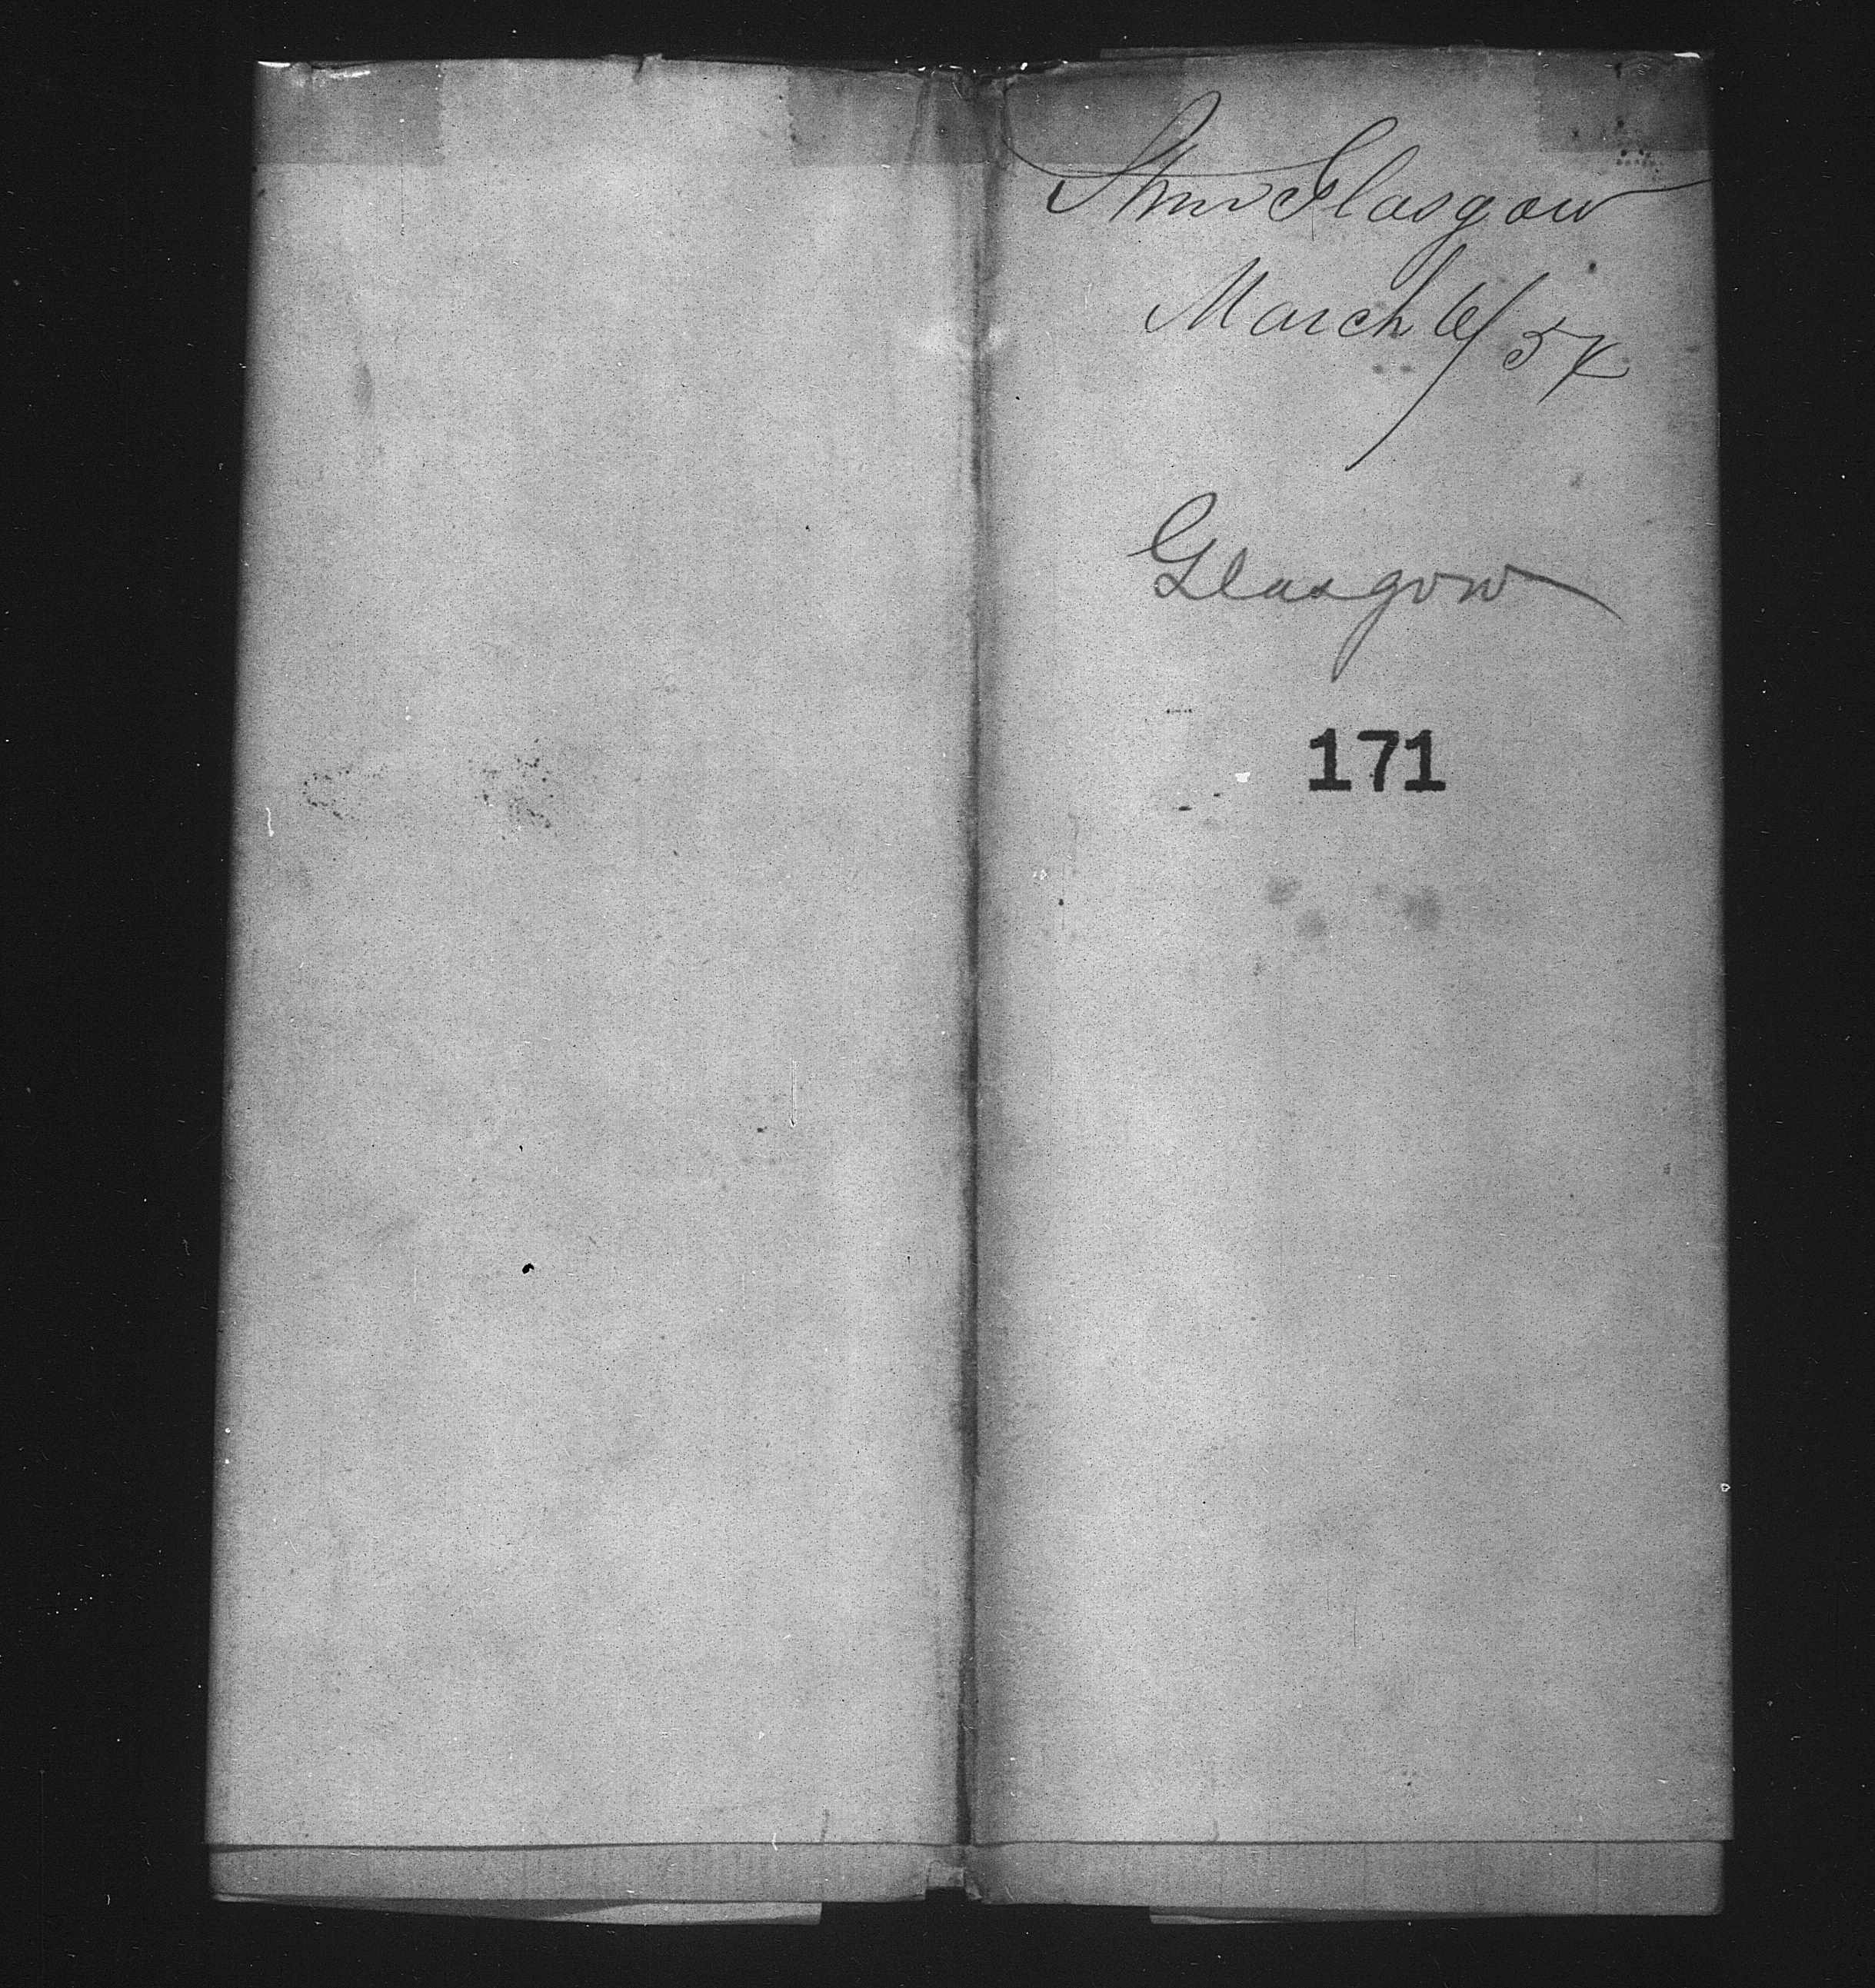 Stmr Glasgow
March 6/54
Glasgow
171